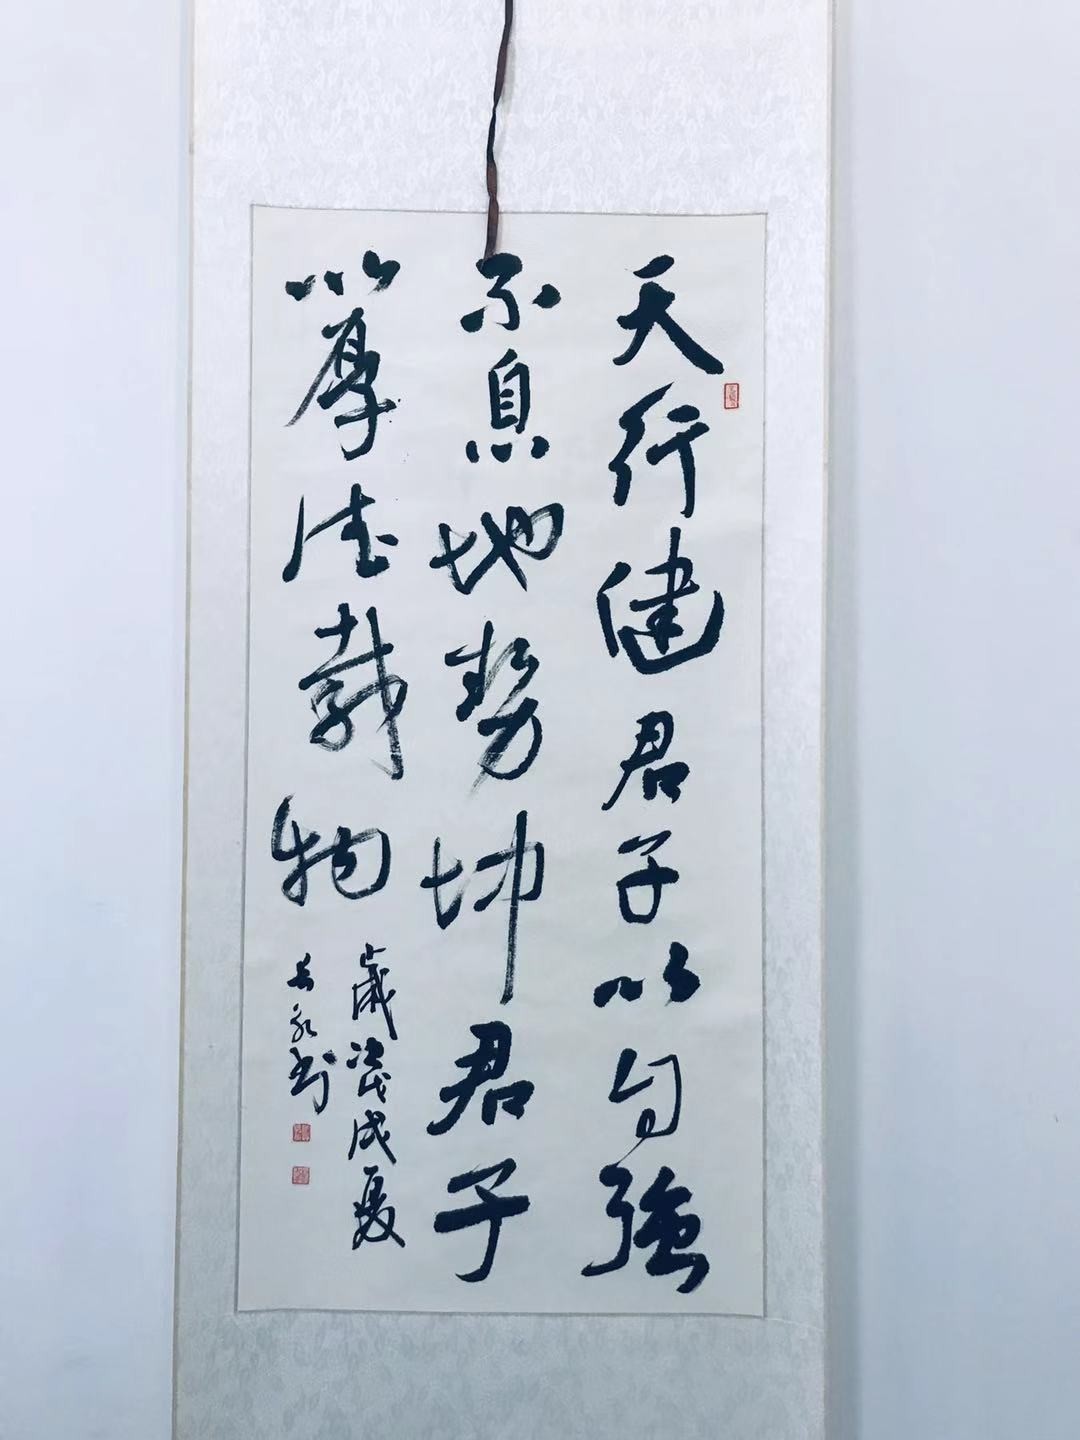 天行健君子以自強
不息地势坤君子
以厚德载物
歲次戊戌夏
长永书